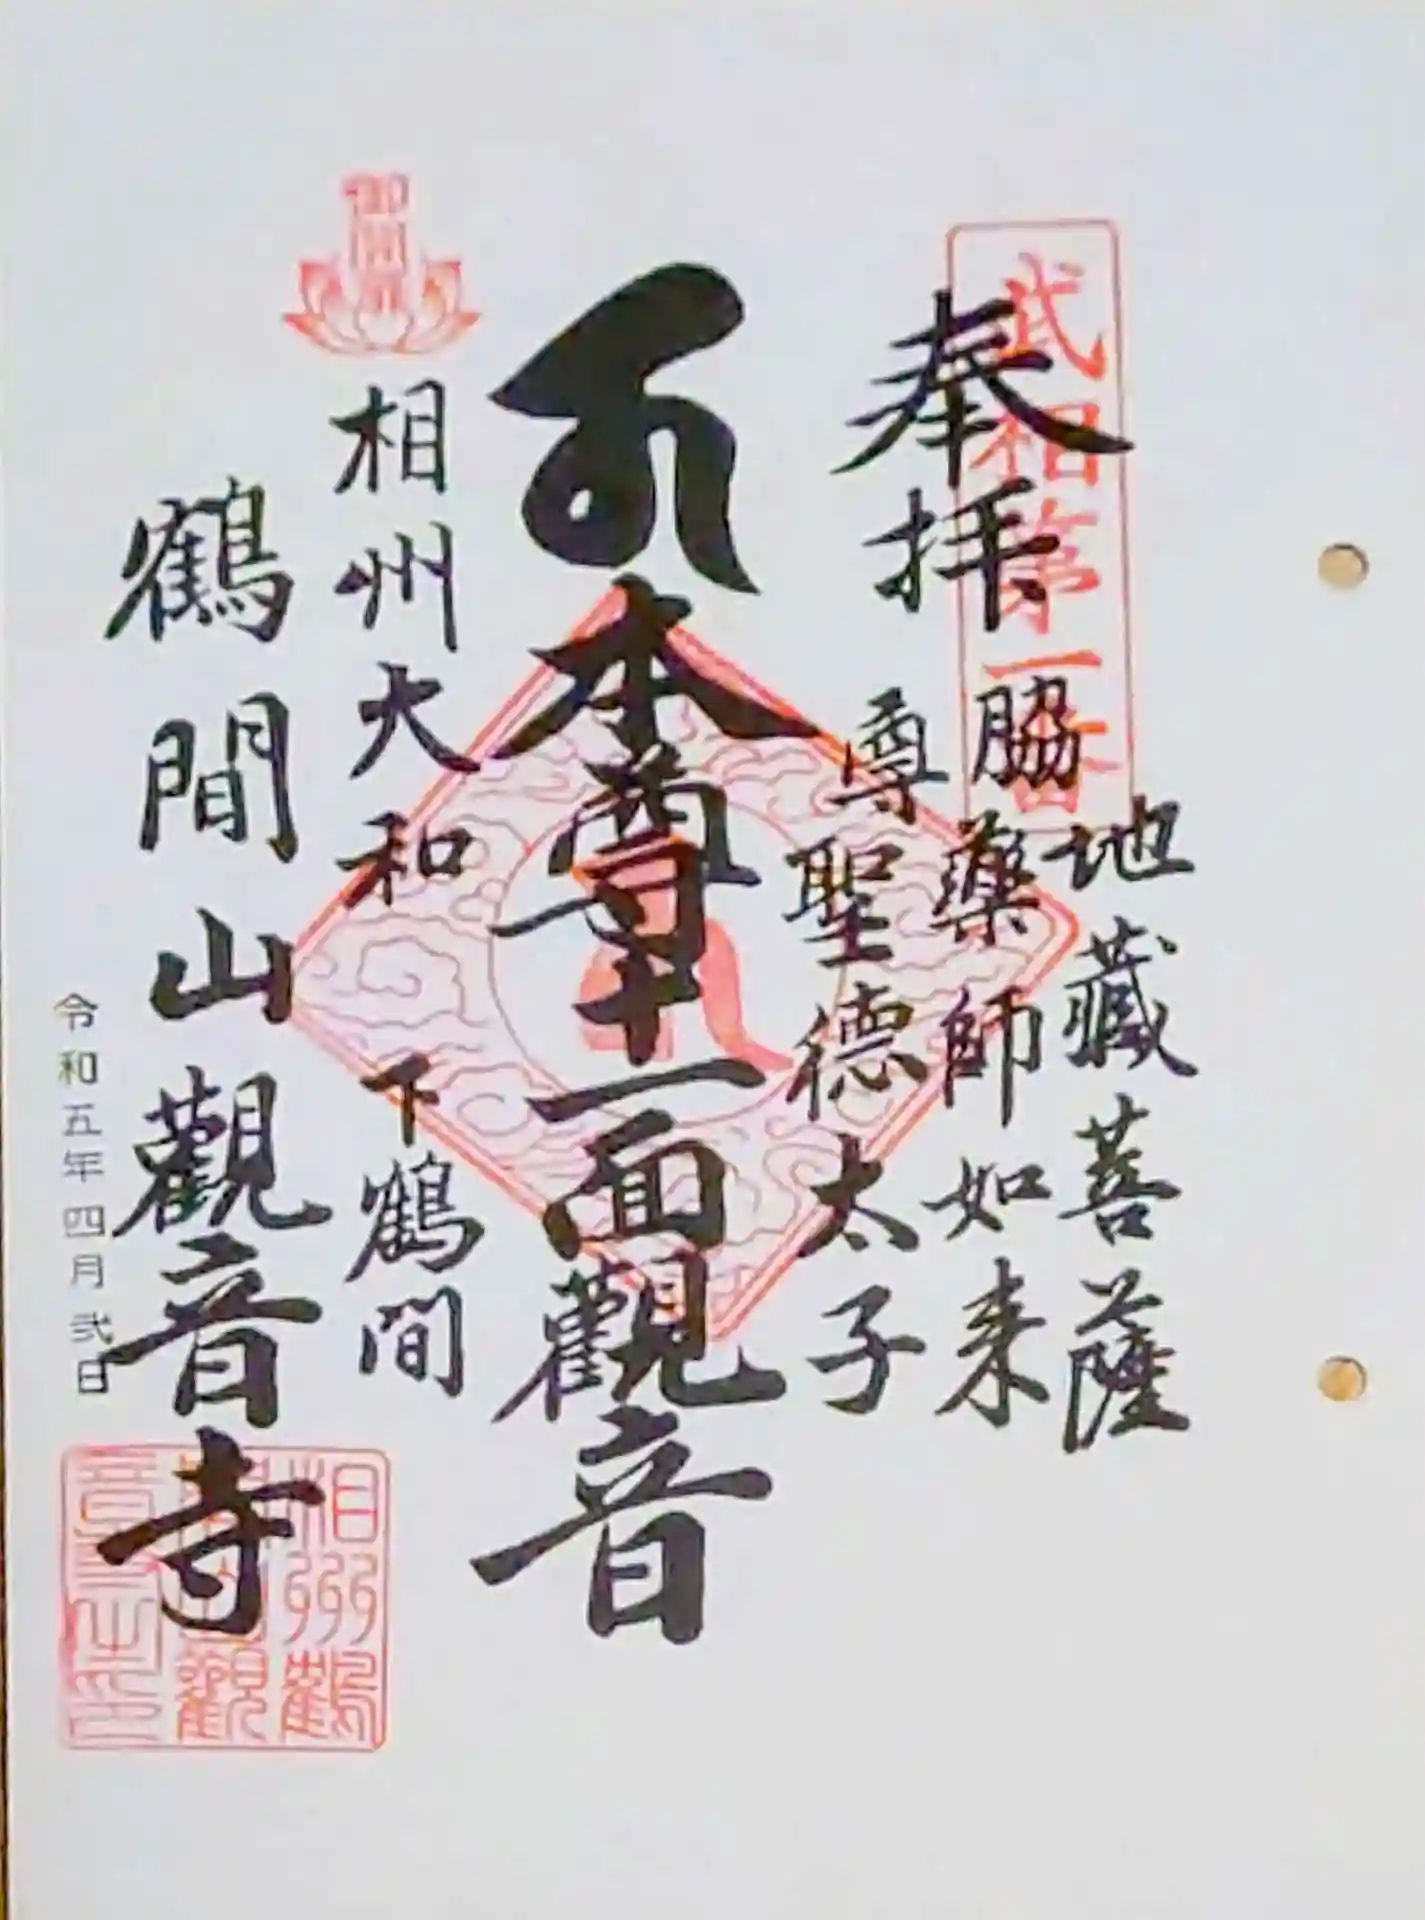 武相第一番
奉拝
脇
尊
地藏菩薩
藥師如来
聖德太子
本尊十一面觀音
相州大和下鶴間
鶴間山觀音寺
令和五年四月弐日